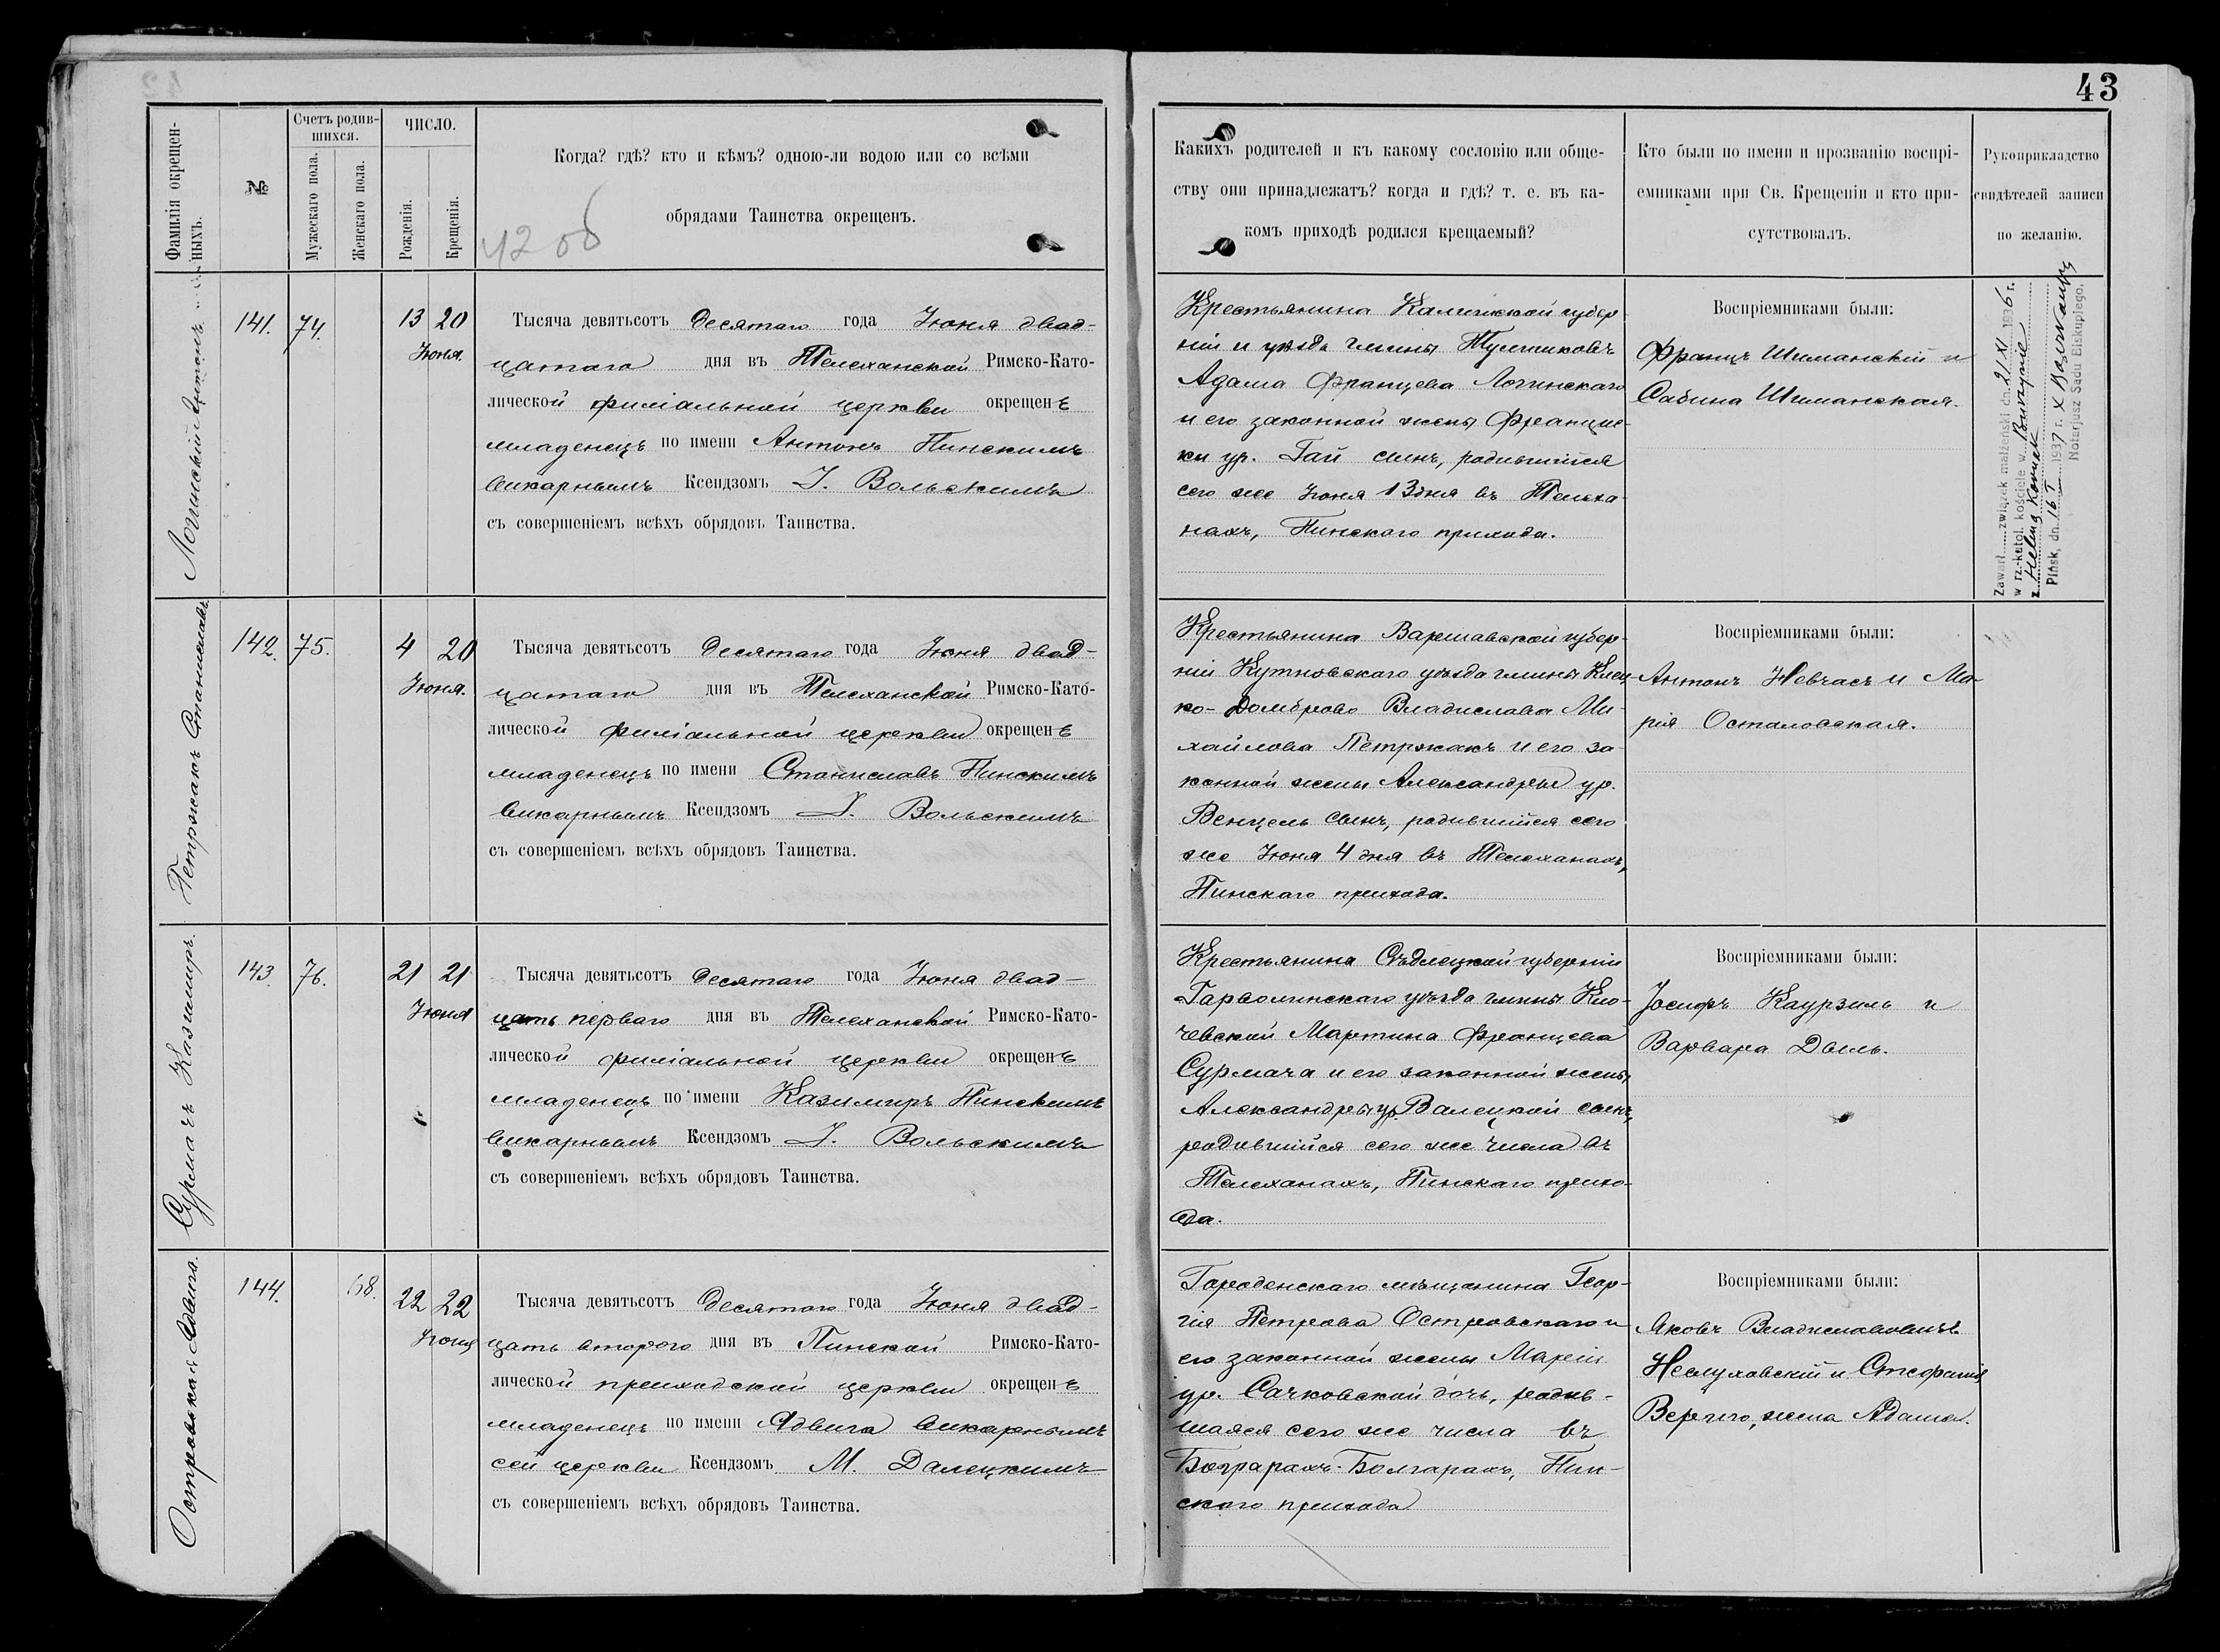 43
Фамилія окрещен-
ныхъ.
№
Счетъ родив-
шихся.
Мужескаго пола.
Женскаго пола.
ЧИСЛО.
Рожденія.
Крещенія.
Когда? гдѣ? кто и кѣмъ? одною-ли водою или со всѣми
обрядами Таинства окрещенъ.
Какихъ родителей и къ какому сословію или обще-
ству они принадлежатъ? когда и гдѣ? т. е. въ ка-
комъ приходѣ родился крещаемый?
Кто были по имени и прозванію воспрі-
емниками при Св. Крещеніи и кто при-
сутствовалъ.
Рукоприкладство
свидѣтелей записи
по желанію.
Лочинскій Антонъ
141. 74. 13 20
Іюня.
Тысяча девятьсотъ десятаго года Іюня двад-
цатаго дня въ Телеханской Римско-Като-
лической филіальной церкви окрещенъ
младенецъ по имени Антонъ Пинскимъ
викарнымъ Ксендзомъ І. Вольскимъ
съ совершеніемъ всѣхъ обрядовъ Таинства.
Крестьянина Калишской губер-
ніи и уѣзда гмины
Адама Францева Лочинскаго
и его законной жены Франциш-
ки ур. Гай сынъ, родившійся
сего же Іюня 13 дня въ Телеха-
нахъ, Пинскаго прихода.
Воспріемниками были:
Францъ Шиманскій и
Сабина Шиманская.
Zawarł związek małżeński dn. 21 XI 1936 r.
w rz.-katol. kościele w
z Heleną
Pińsk, dn. 16 I 1937 r.
Notarjusz Sądu Biskupiego.
Петржакъ Станиславъ
142. 75. 4 20
Іюня.
Тысяча девятьсотъ десятаго года Іюня двад-
цатаго дня въ Телеханской Римско-Като-
лической филіальной церкви окрещенъ
младенецъ по имени Станиславъ Пинскимъ
викарнымъ Ксендзомъ І. Вольскимъ
съ совершеніемъ всѣхъ обрядовъ Таинства.
Крестьянина Варшавской губер-
ніи Кутновскаго уѣзда гмины
ко-Домброво Владислава Ми-
хайлова Петржакъ и его за-
конной жены Александры ур.
Венцель сынъ, родившійся сего
же Іюня 4 дня въ Телеханахъ,
Пинскаго прихода.
Воспріемниками были:
Антонъ Невчасъ и Ма-
рія Осталовская.
Сурмачъ Казимиръ.
143. 76. 21 21
Іюня
Тысяча девятьсотъ десятаго года Іюня двад-
цать перваго дня въ Телеханской Римско-Като-
лической филіальной церкви окрещенъ
младенецъ по имени Казимиръ Пинскимъ
викарнымъ Ксендзомъ І. Вольскимъ
съ совершеніемъ всѣхъ обрядовъ Таинства.
Крестьянина Сѣдлецкой губерніи
Гарволинскаго уѣзда гмины Кло-
чевской Мартина Францева
Сурмача и его законной жены
Александры ур. Валецкой сынъ,
родившійся сего же числа въ
Телеханахъ, Пинскаго прихо-
да.
Воспріемниками были:
Іосифъ Каурзель и
Варвара Двель.
Островская Ядвига.
144. 68. 22 22
Іюня
Тысяча девятьсотъ десятаго года Іюня двад-
цать второго дня въ Пинской Римско-Като-
лической приходской церкви окрещенъ
младенецъ по имени Ядвига викарнымъ
сей церкви Ксендзомъ М. Далецкимъ
съ совершеніемъ всѣхъ обрядовъ Таинства.
Городенскаго мѣщанина Геор-
гія Петрова Островскаго и
его законной жены Маріи
ур. Сачковской дочь, родив-
шаяся сего же числа въ
Болгарахъ, Пин-
скаго прихода
Воспріемниками были:
Яковъ Владиславовичъ
Неслуховскій и Стефанія
Вериго, жена Адама.